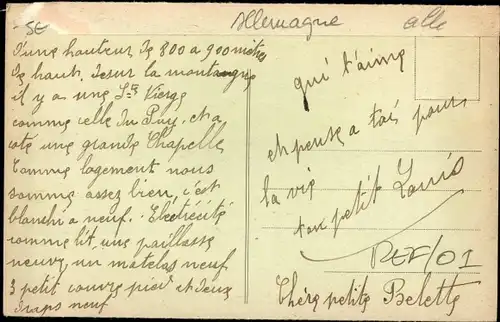 SE
Allemagne
alle
D'une hauteur de 800 a 900 mètres
de haut, dessur la montagne
il y a une Ste Vierge
comme celle du Puy, et a
coté une grande Chapelle
Comme logement nous
somme assez bien, c'est
blanchi a neuf. Electricité
comme lit, une paillasse
neuve, un matelas neuf
3 petit couvre pied et deux
draps neuf
qui t'aime
et pense a toi pour
la vie
ton petit Louis
REF/01
Chère petite Belette